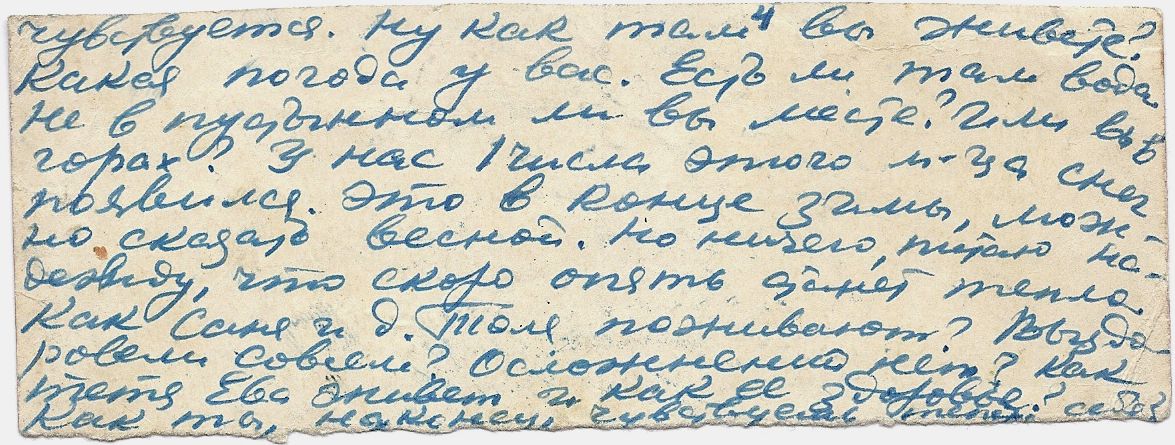 чувствуется. Ну как там вы живёте?
Какая погода у вас. Есть ли там вода
Не в пустынном ли вы месте? Или вы в
горах? У нас 1 числа этого м-ца снег
появился. Это в конце зимы, мож-
но сказать весной. Но ничего, питаю на-
дежду, что скоро опять станет тепло.
Как Саня и д. Толя поживают? Выздо-
ровели совсем? Осложнений нет? Как
тётя Ева живет и как ее здоровье?
Как ты, наконец, чувствуешь себя?